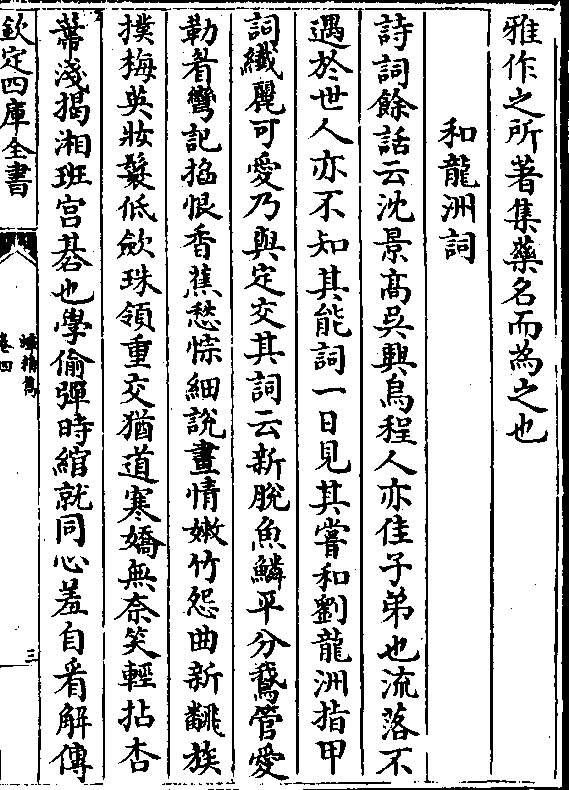 雅作之所著集藥名而為之也
和龍洲詞
詩詞餘話云沈景髙吳興烏程人亦佳子弟也流落不
遇於世人亦不知其能詞一日見其嘗和劉龍洲指甲
詞纖麗可愛乃與定交其詞云新脫魚鱗平分鵞管愛
勒眷鸞記掐恨香蕉愁悰細說畫情嫩竹怨曲新翻族
撲梅英妝鬟低歛珠領重交猶道寒嬌無奈笑輕拈杏
蕚淺揭湘班宫碁也學偷彈時綰就同心羞自看解傳
欽定四庫全書
卷四
三